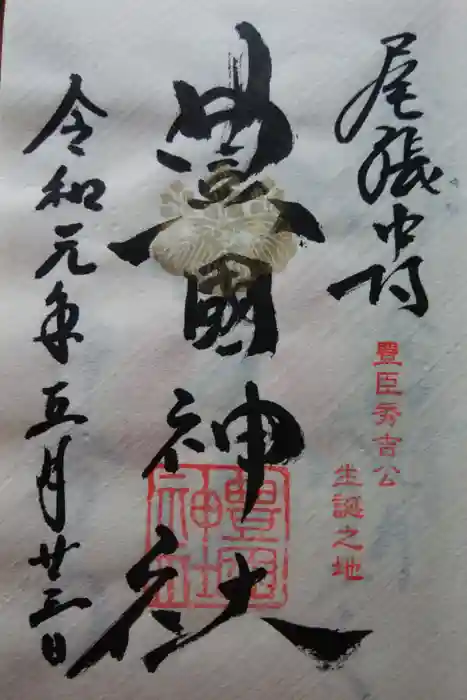 尾張中村
豊臣秀吉公
生誕之地
豊國神社
豊國神社
令和元年五月廿三日